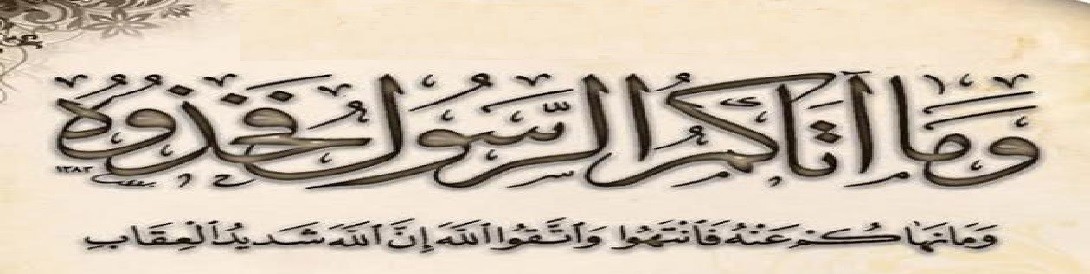 وَمَا آتَاكُمُ الرَّسُولُ فَخُذُوهُ
١٣٨٣
وَمَا نَهَاكُمْ عَنْهُ فَٱنْتَهُوا وَٱتَّقُوا ٱللَّهَ إِنَّ ٱللَّهَ شَدِيدُ ٱلْعِقَابِ